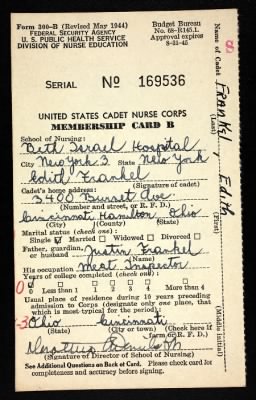 Form 300-B (Revised May 1944)
FEDERAL SECURITY AGENCY
U. S. PUBLIC HEALTH SERVICE
DIVISION OF NURSE EDUCATION
Budget Bureau
No. 68-R145.1.
Approval expires
8-31-45
SERIAL No 169536
UNITED STATES CADET NURSE CORPS
MEMBERSHIP CARD B
School of Nursing:
Beth Israel Hospital
City New York 3 State New York
Edith Frankel
Cadet's home address: (Signature of cadet)
3400 Burnet Ave.
(Number and street, or R. F. D.)
Cincinnati Hamilton Ohio
(City) (County) (State)
Marital status (check one):
Single Married Widowed Divorced
Father, guardian, or husband Justin Frankel
(Name)
His occupation Meat Inspector
Years of college completed (check only):
0 Less than 1 1 2 3 4 More than 4
Usual place of residence during 10 years preceding
admission to Corps (designate only one place, that
which is most typical for the period):
Ohio Cincinnati
(State) (City or town) (Check here if
farm or R. F. D.)
(Signature of Director of School of Nursing)
See Additional Questions on Back of Card. Please check card for
completeness and accuracy before signing.
S
Name of Cadet
Frankel Edith
(Last) (First) (Middle initial)
0
3